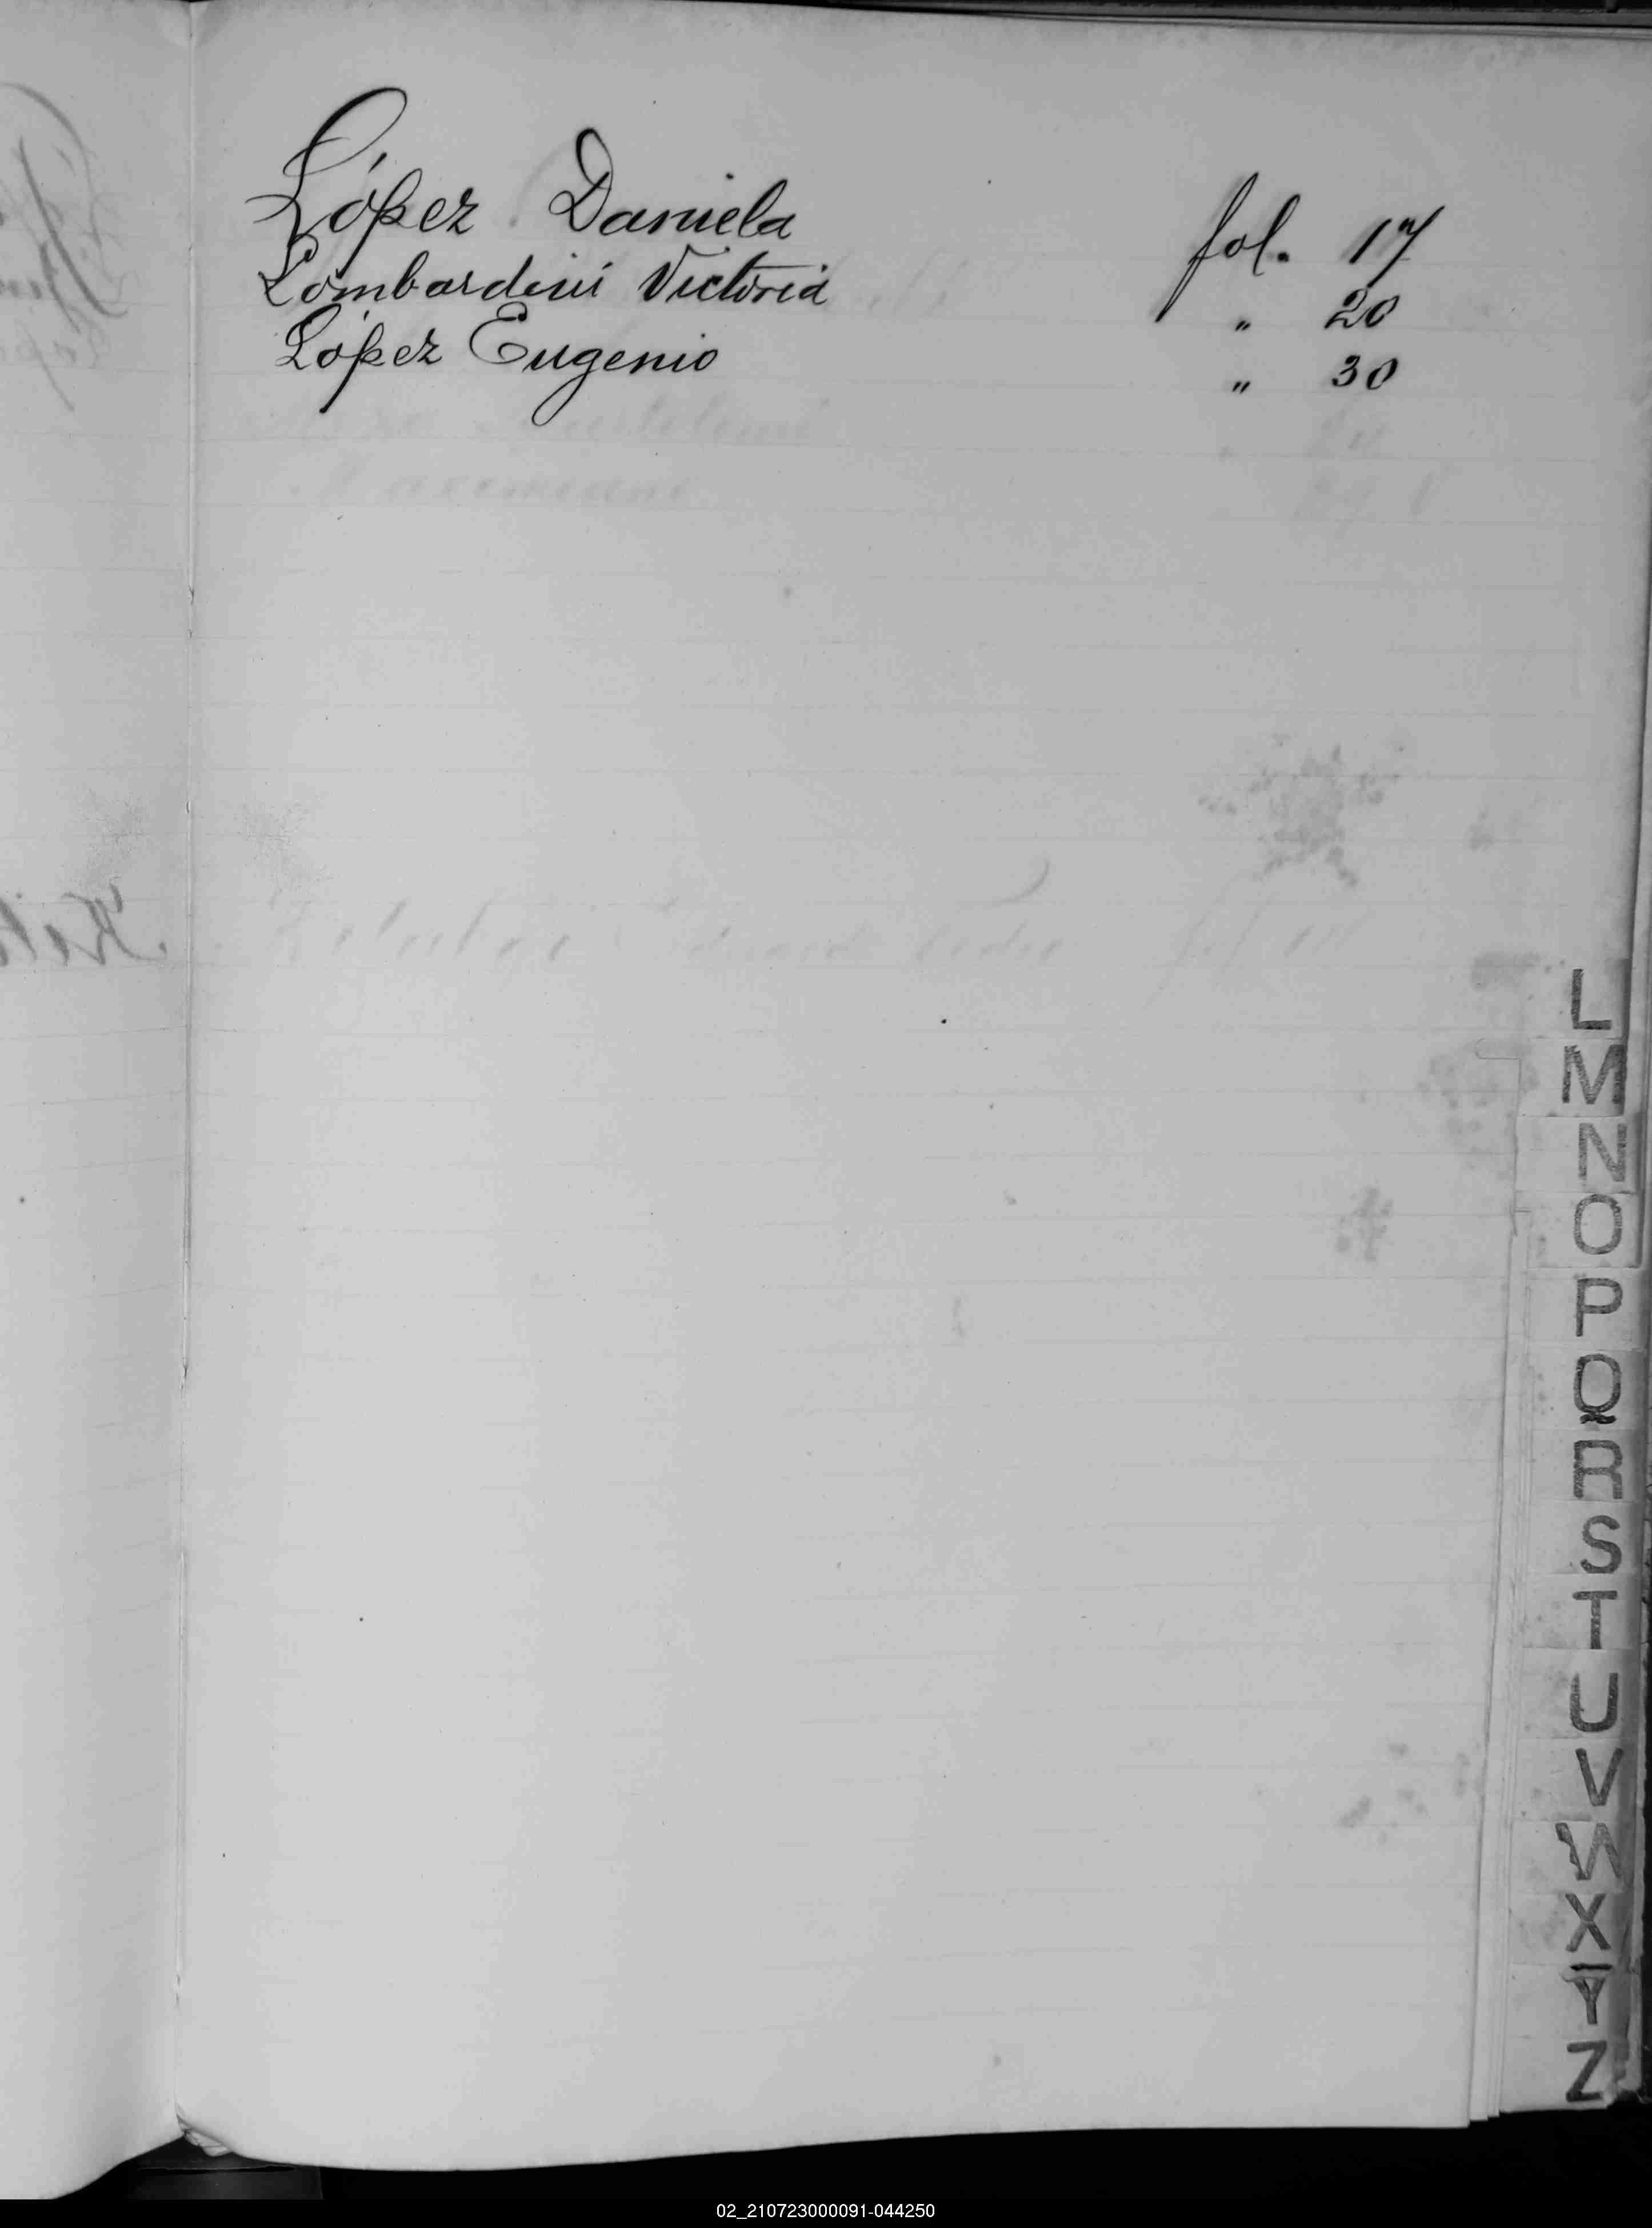 López Daniela fol. 17
Lombardini Victoria " 20
López Eugenio " 30
L
M
N
O
P
Q
R
S
T
U
V
W
X
Y
Z
02_210723000091-044250